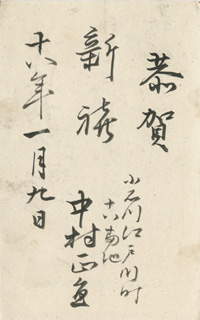 恭賀
新禧
十八年一月九日
小石川江戸川町
十八番地
中村正直